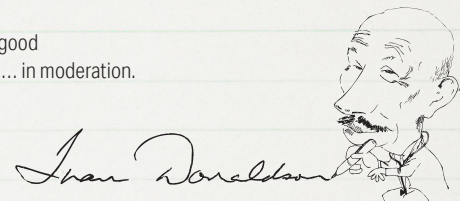 good
... in moderation.
Ivan Donaldson